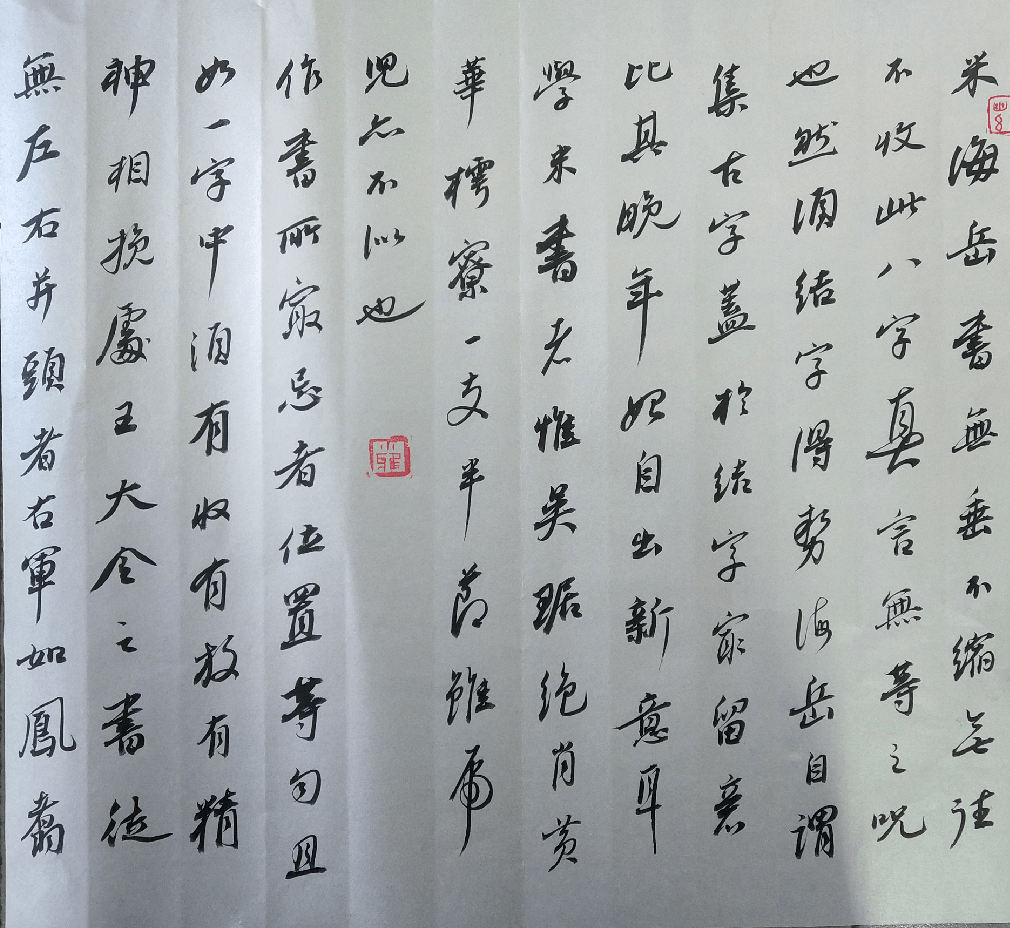 米海岳書無垂不縮無往
不收此八字真言無等之呪
也然須結字得勢海岳自謂
集古字蓋於結字最留意
比其晚年始自出新意耳
學米書者惟吳琚絕肖黃
華樗寮一支半節雖虎
兒亦不似也
作書所最忌者位置等勻且
如一字中須有收有放有精
神相挽處王大令之書從
無左右并頭者右軍如鳳翥